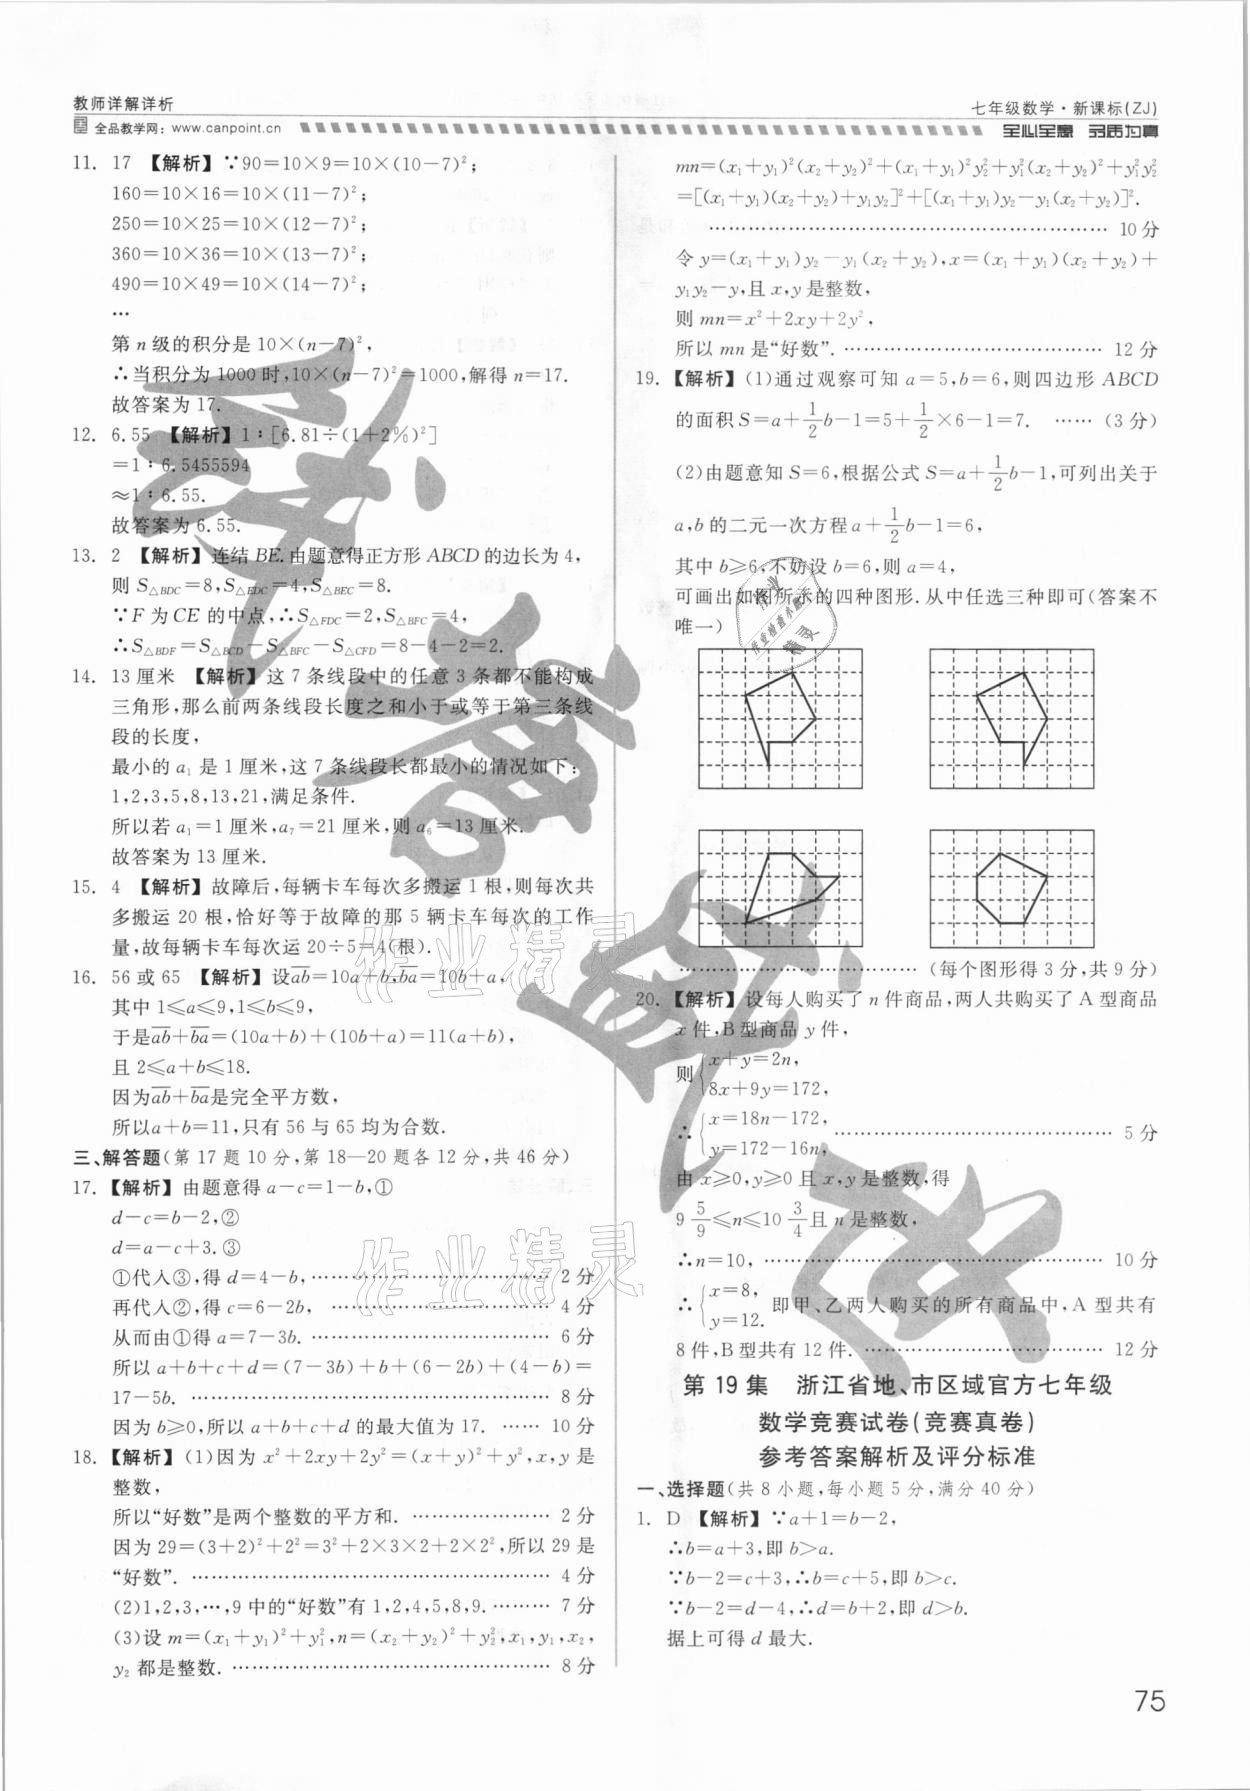 教师详解详析
七年级数学·新课标(ZJ)
全品教学网：www.canpoint.cn
全心全意 多品为真
11. 17 【解析】∵90=10×9=10×(10-7)²；
160=10×16=10×(11-7)²；
250=10×25=10×(12-7)²；
360=10×36=10×(13-7)²；
490=10×49=10×(14-7)²；
…
第 n 级的积分是 10×(n-7)²，
∴当积分为 1000 时，10×(n-7)²=1000，解得 n=17.
故答案为 17.
12. 6.55 【解析】1∶[6.81÷(1+2%)²]
=1∶6.5455594
≈1∶6.55.
故答案为 6.55.
13. 2 【解析】连结 BE.由题意得正方形 ABCD 的边长为 4，
则 S△BDC=8，S△EDC=4，S△BEC=8.
∵F 为 CE 的中点，∴S△FDC=2，S△BFC=4，
∴S△BDF=S△BCD-S△BFC-S△CFD=8-4-2=2.
14. 13 厘米 【解析】这 7 条线段中的任意 3 条都不能构成
三角形，那么前两条线段长度之和小于或等于第三条线
段的长度，
最小的 a₁ 是 1 厘米，这 7 条线段长都最小的情况如下：
1，2，3，5，8，13，21，满足条件.
所以若 a₁=1 厘米，a₇=21 厘米，则 a₆=13 厘米.
故答案为 13 厘米.
15. 4 【解析】故障后，每辆卡车每次多搬运 1 根，则每次共
多搬运 20 根，恰好等于故障的那 5 辆卡车每次的工作
量，故每辆卡车每次运 20÷5=4(根).
16. 56 或 65 【解析】设a̅b̅=10a+b，b̅a̅=10b+a，
其中 1≤a≤9，1≤b≤9，
于是a̅b̅+b̅a̅=(10a+b)+(10b+a)=11(a+b)，
且 2≤a+b≤18.
因为a̅b̅+b̅a̅是完全平方数，
所以a+b=11，只有 56 与 65 均为合数.
三、解答题(第 17 题 10 分，第 18—20 题各 12 分，共 46 分)
17. 【解析】由题意得 a-c=1-b，①
d-c=b-2，②
d=a-c+3.③
①代入③，得 d=4-b，……………………………… 2 分
再代入②，得 c=6-2b，…………………………… 4 分
从而由①得 a=7-3b. ……………………………… 6 分
所以 a+b+c+d=(7-3b)+b+(6-2b)+(4-b)=
17-5b. ……………………………………………… 8 分
因为 b≥0，所以 a+b+c+d 的最大值为 17. …… 10 分
18. 【解析】(1)因为 x²+2xy+2y²=(x+y)²+y²，x，y 是
整数，
所以“好数”是两个整数的平方和. ………………… 2 分
因为 29=(3+2)²+2²=3²+2×3×2+2×2²，所以 29 是
“好数”. ……………………………………………… 4 分
(2)1，2，3，…，9 中的“好数”有 1，2，4，5，8，9. ……… 7 分
(3)设 m=(x₁+y₁)²+y₁²，n=(x₂+y₂)²+y₂²，x₁，y₁，x₂，
y₂ 都是整数. ………………………………………… 8 分
mn=(x₁+y₁)²(x₂+y₂)²+(x₁+y₁)²y₂²+y₁²(x₂+y₂)²+y₁²y₂²
=[(x₁+y₁)(x₂+y₂)+y₁y₂]²+[(x₁+y₁)y₂-y₁(x₂+y₂)]².
…………………………………………………… 10 分
令 y=(x₁+y₁)y₂-y₁(x₂+y₂)，x=(x₁+y₁)(x₂+y₂)+
y₁y₂-y，且 x，y 是整数，
则 mn=x²+2xy+2y²，
所以 mn 是“好数”. ………………………………… 12 分
19. 【解析】(1)通过观察可知 a=5，b=6，则四边形 ABCD
的面积 S=a+1/2b-1=5+1/2×6-1=7. …… (3 分)
(2)由题意知 S=6，根据公式 S=a+1/2b-1，可列出关于
a，b 的二元一次方程 a+1/2b-1=6，
其中 b≥6，不妨设 b=6，则 a=4，
可画出如图所示的四种图形.从中任选三种即可(答案不
唯一)
……………………………… (每个图形得 3 分，共 9 分)
20. 【解析】设每人购买了 n 件商品，两人共购买了 A 型商品
x 件，B 型商品 y 件，
则{x+y=2n，
8x+9y=172，
∴{x=18n-172，
y=172-16n， …………………………………… 5 分
由 x≥0，y≥0 且 x，y 是整数，得
9 5/9≤n≤10 3/4且 n 是整数，
∴n=10，…………………………………………… 10 分
∴{x=8，
y=12. 即甲、乙两人购买的所有商品中，A 型共有
8 件，B 型共有 12 件. ……………………………… 12 分
第 19 集 浙江省地、市区域官方七年级
数学竞赛试卷(竞赛真卷)
参考答案解析及评分标准
一、选择题(共 8 小题，每小题 5 分，满分 40 分)
1. D 【解析】∵a+1=b-2，
∴b=a+3，即 b>a.
∵b-2=c+3，∴b=c+5，即 b>c.
∵b-2=d-4，∴d=b+2，即 d>b.
据上可得 d 最大.
75
作业精灵
作业精灵